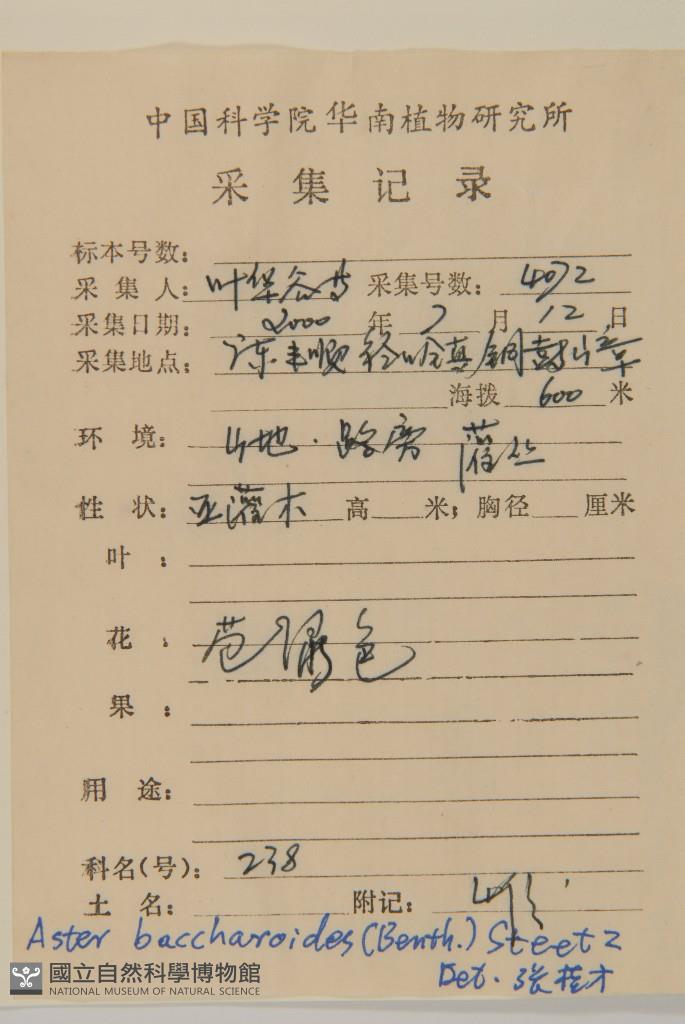 中国科学院华南植物研究所
采集记录
标本号数：
采集人：叶华谷等 采集号数：4072
采集日期：2000年7月12日
采集地点：广东丰顺 镇铜鼓
海拨 600 米
环境：山地·路旁 灌丛
性状：亚灌木 高 米；胸径 厘米
叶：
花：苞绿色
果：
用途：
科名(号)：238
土名： 附记：
Aster baccharoides (Benth.) Steetz
Det. 张桂才
國立自然科學博物館
NATIONAL MUSEUM OF NATURAL SCIENCE